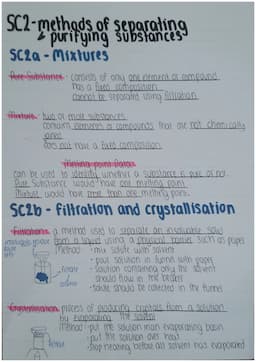 SC2 - methods of separating
& purifying substances
SC2a - Mixtures
Pure Substance - consists of only one element or compound
has a fixed composition
cannot be separated using filtration
Mixture - two or more substances
contains elements or compounds that are not chemically
joined
does not have a fixed composition
Melting point Data
can be used to identify whether a substance is pure or not
Pure Substance would have one melting point
Mixture would have more than one melting point
SC2b - Filtration and crystallisation
Filtration - a method used to separate an insoluble solid
from a liquid using a physical barrier such as paper
Method - mix solute with solvent
- pour solution in funnel with paper
- solution containing only the solvent
should flow in the beaker
- solute should be collected in the funnel
Crystallisation - process of producing crystals from a solution
by evaporating the solvent
Method - put the solution in an evaporating basin
- put the solution over heat
- stop heating before all solvent has evaporated